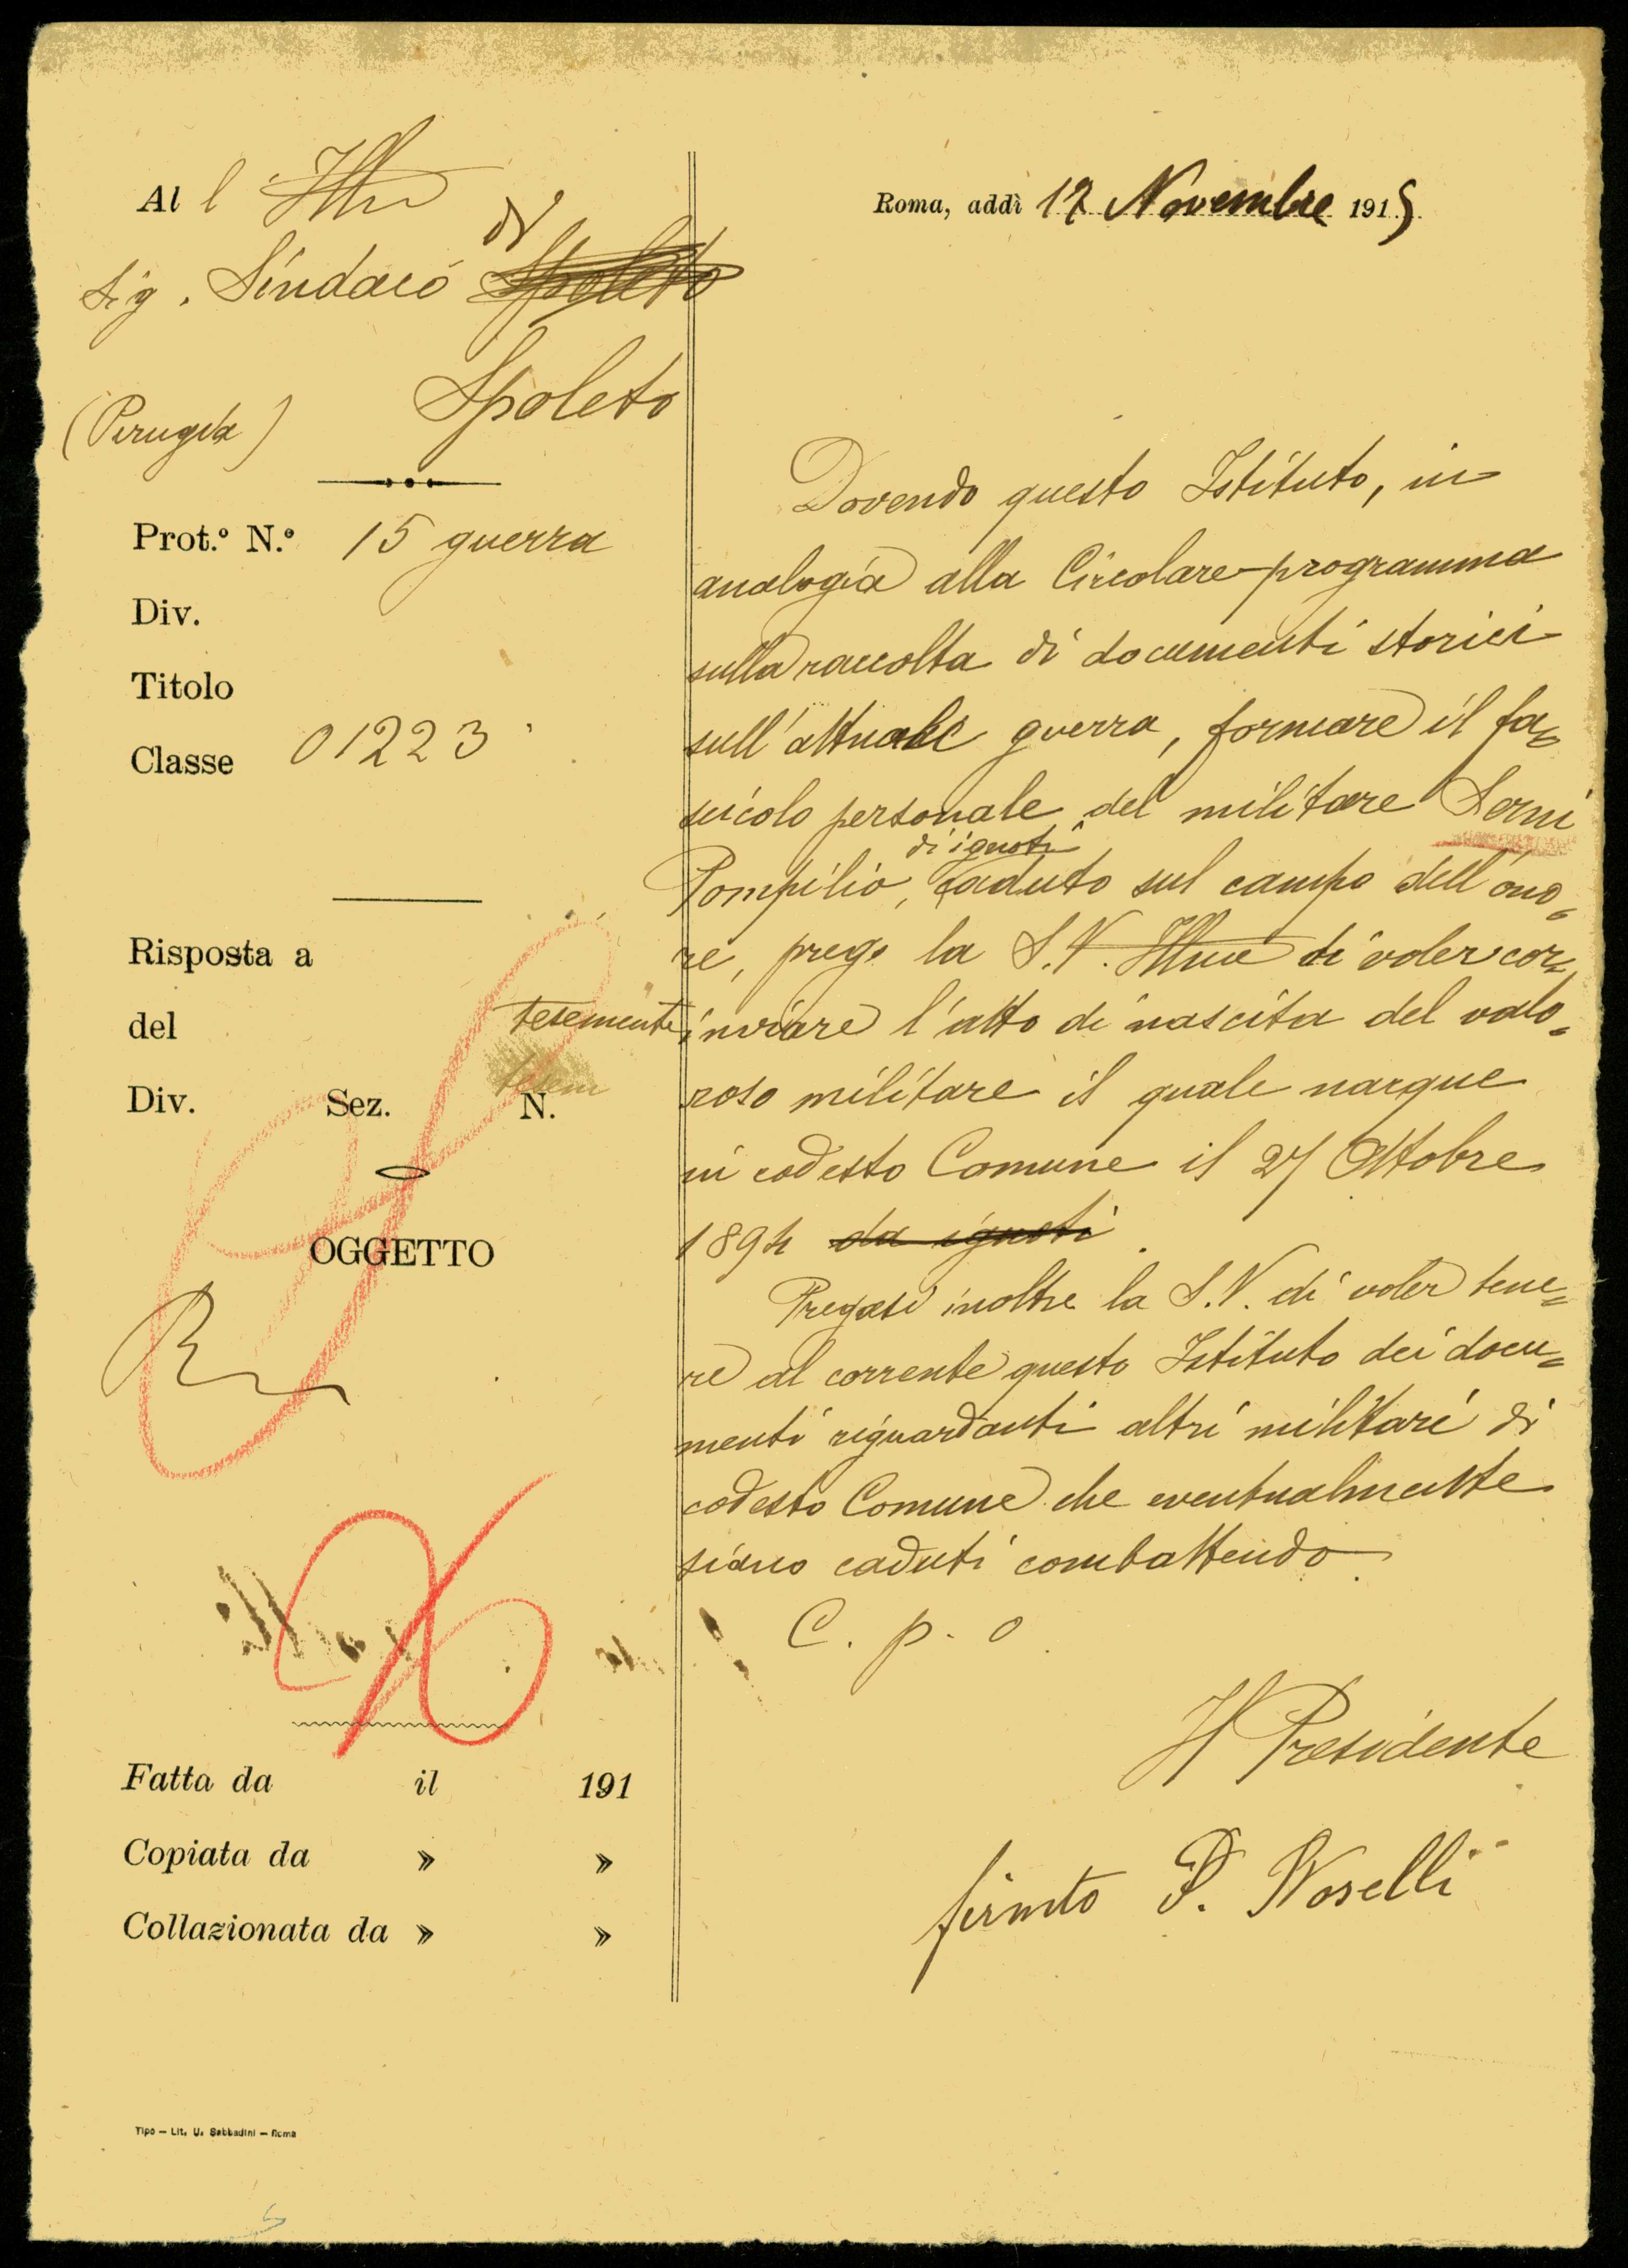 All' Ill.mo
Sig. Sindaco di Spoleto
Spoleto
(Perugia)
Prot.º N.º 15 guerra
Div.
Titolo
Classe 01223
Risposta a
del
Div. Sez. N.
OGGETTO
Fatta da il 191
Copiata da » »
Collazionata da » »
Tipo - Lit. U. Sabbadini - Roma
Roma, addì 17 Novembre 1915
Dovendo questo Istituto, in
analogia alla Circolare-programma
sulla raccolta di documenti storici
sull'attuale guerra, formare il fa=
scicolo personale del militare Serni
di ignoti
Pompilio, caduto sul campo dell'ono=
re, prego la S.V. Ill.ma di voler cor=
tesemente inviare l'atto di nascita del valo=
tesem
roso militare il quale nacque
in codesto Comune il 27 Ottobre
1894 da ignoti.
Pregasi inoltre la S.V. di voler tene=
re al corrente questo Istituto dei docu=
menti riguardanti altri militari di
codesto Comune che eventualmente
siano caduti combattendo.
C. p. o.
Il Presidente
firmato P. Boselli